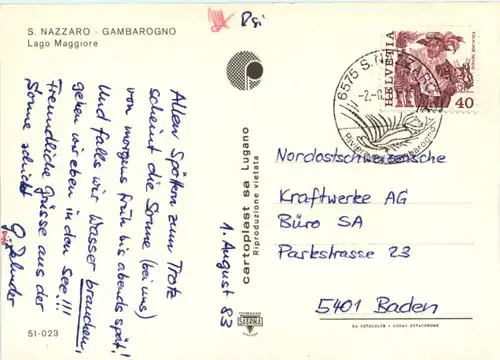 S. NAZZARO - GAMBAROGNO
Lago Maggiore
Allen Spöttern zum Trotz
scheint die Sonne (bei uns)
von morgens früh bis abends spät!
Und falls wir Wasser brauchen,
gehen wir eben in den See!!!
Freundliche Grüsse aus der
Sonne schickt
1. August 83
51-023
cartoplast sa Lugano
Riproduzione vietata
SABRINA
6575 S. NAZZARO
Riviera del Gambarogno
HELVETIA
40
Nordostschweizerische
Kraftwerke AG
Büro SA
Parkstrasse 23
5401 Baden
DA FOTOCOLOR - KODAK EKTACHROME